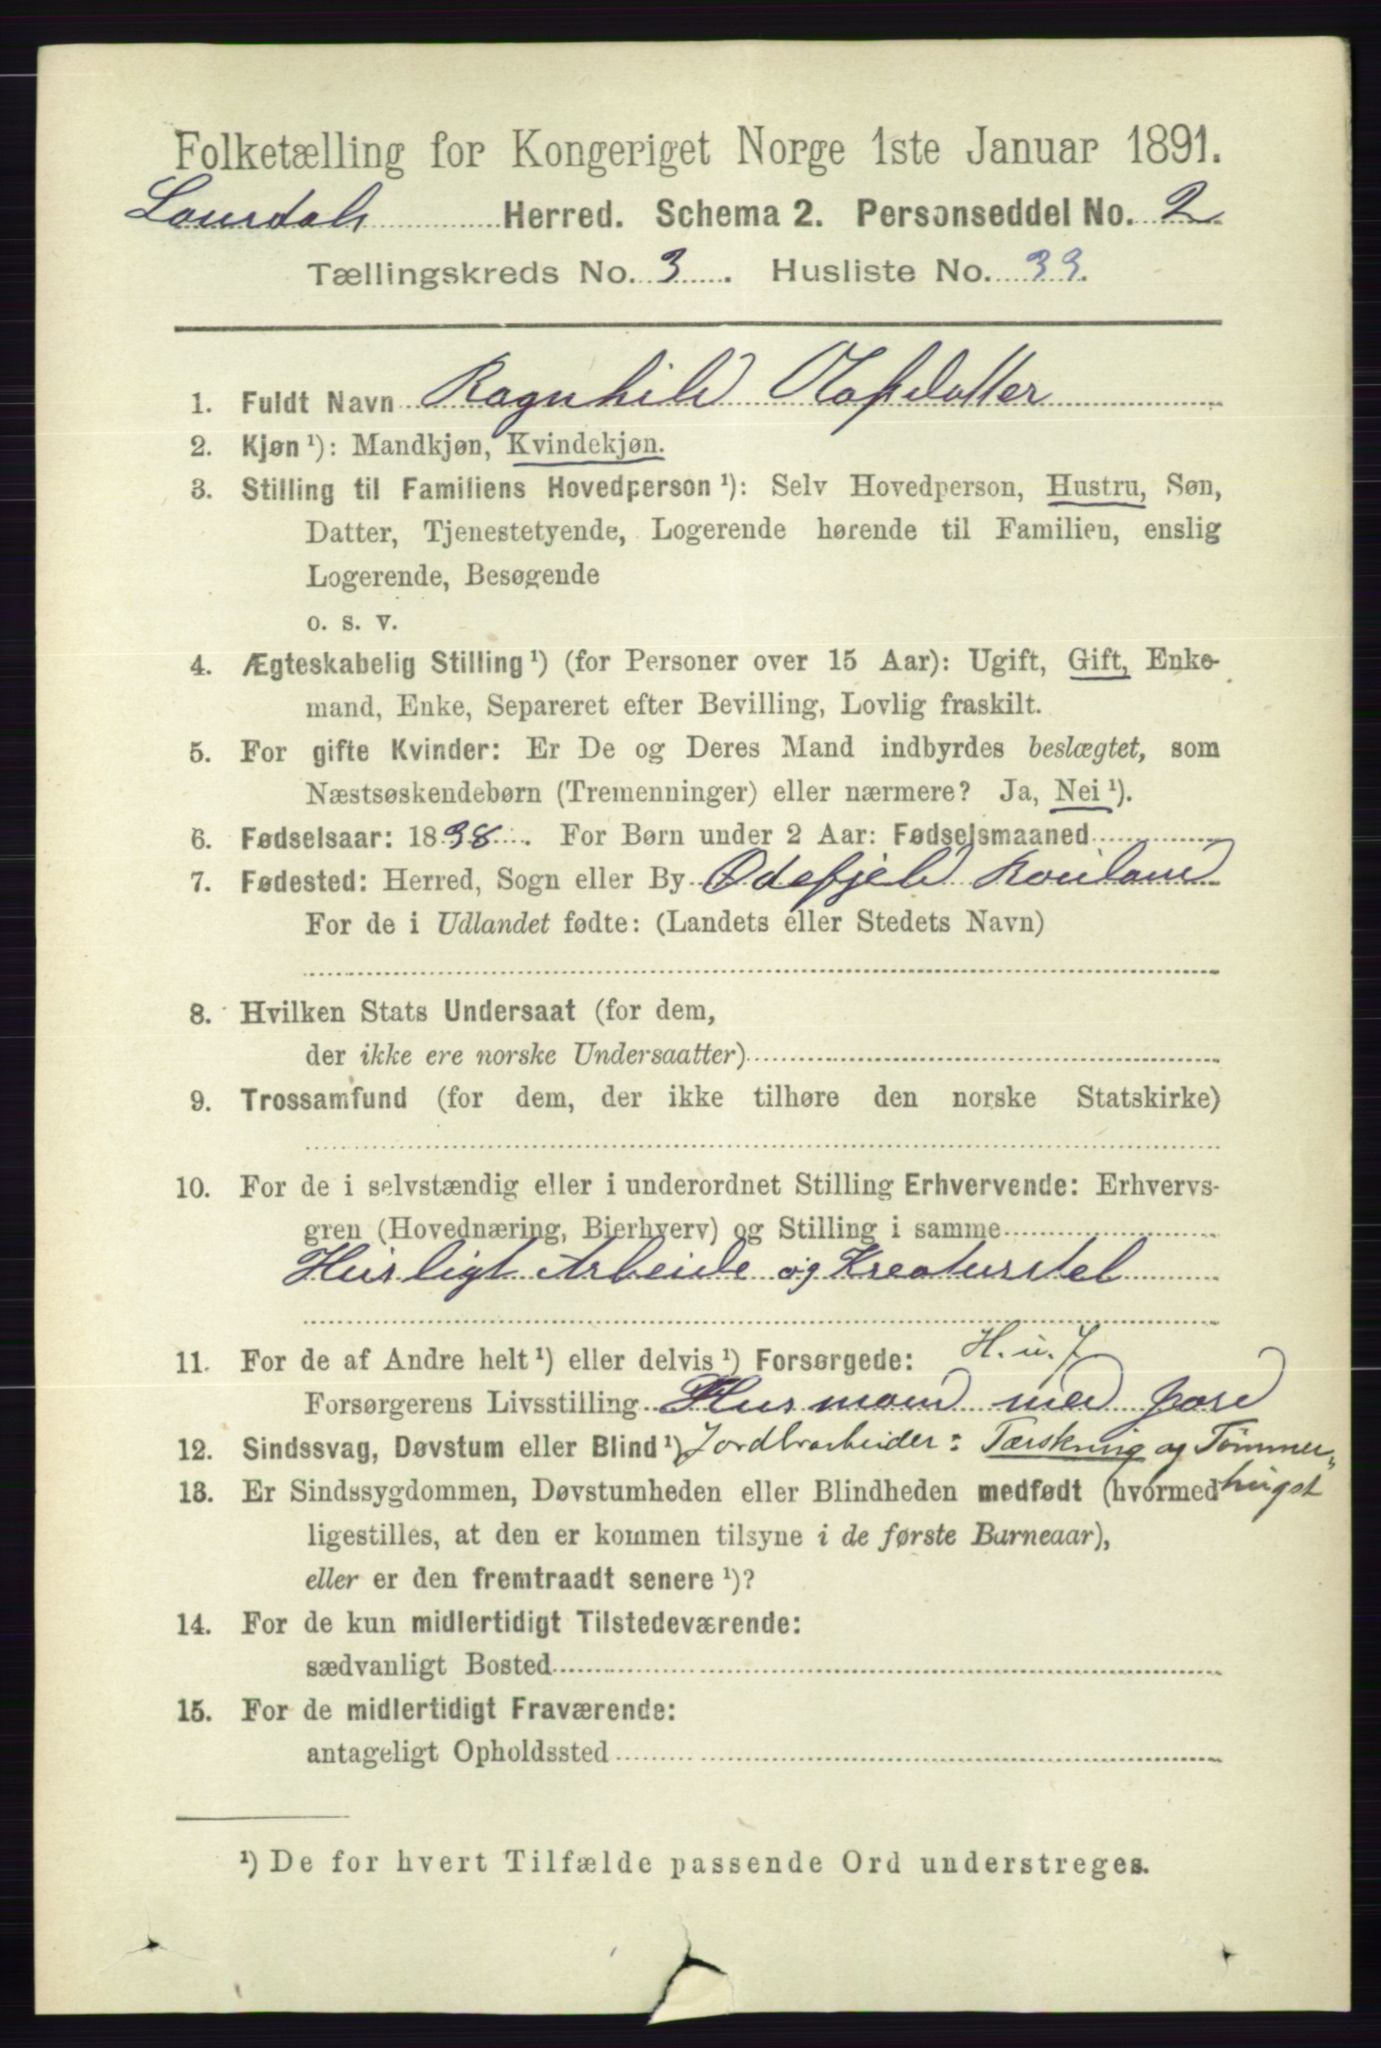 Folketælling for Kongeriget Norge 1ste Januar 1891.
Laurdals Herred. Schema 2. Personseddel No. 2
Tællingskreds No. 3. Husliste No. 33.
1. Fuldt Navn Ragnhild Olafsdatter
2. Kjøn ¹): Mandkjøn, Kvindekjøn.
3. Stilling til Familiens Hovedperson ¹): Selv Hovedperson, Hustru, Søn,
Datter, Tjenestetyende, Logerende hørende til Familien, enslig
Logerende, Besøgende
o. s. v.
4. Ægteskabelig Stilling ¹) (for Personer over 15 Aar): Ugift, Gift, Enke-
mand, Enke, Separeret efter Bevilling, Lovlig fraskilt.
5. For gifte Kvinder: Er De og Deres Mand indbyrdes beslægtet, som
Næstsøskendebørn (Tremenninger) eller nærmere? Ja, Nei ¹).
6. Fødselsaar: 1838. For Børn under 2 Aar: Fødselsmaaned
7. Fødested: Herred, Sogn eller By Ødefjeld
For de i Udlandet fødte: (Landets eller Stedets Navn)
8. Hvilken Stats Undersaat (for dem,
der ikke ere norske Undersaatter)
9. Trossamfund (for dem, der ikke tilhøre den norske Statskirke)
10. For de i selvstændig eller i underordnet Stilling Erhvervende: Erhvervs-
gren (Hovednæring, Bierhverv) og Stilling i samme
Husligt Arbeide og Kreaturstel
H. u. J
11. For de af Andre helt ¹) eller delvis ¹) Forsørgede:
Forsørgerens Livsstilling Husmand med Jord
12. Sindssvag, Døvstum eller Blind ¹) Jordbrarbeider: Tærskning og Tømmer-
13. Er Sindssygdommen, Døvstumheden eller Blindheden medfødt (hvormed hugst
ligestilles, at den er kommen tilsyne i de første Barneaar),
eller er den fremtraadt senere ¹)?
14. For de kun midlertidigt Tilstedeværende:
sædvanligt Bosted
15. For de midlertidigt Fraværende:
antageligt Opholdssted
¹) De for hvert Tilfælde passende Ord understreges.